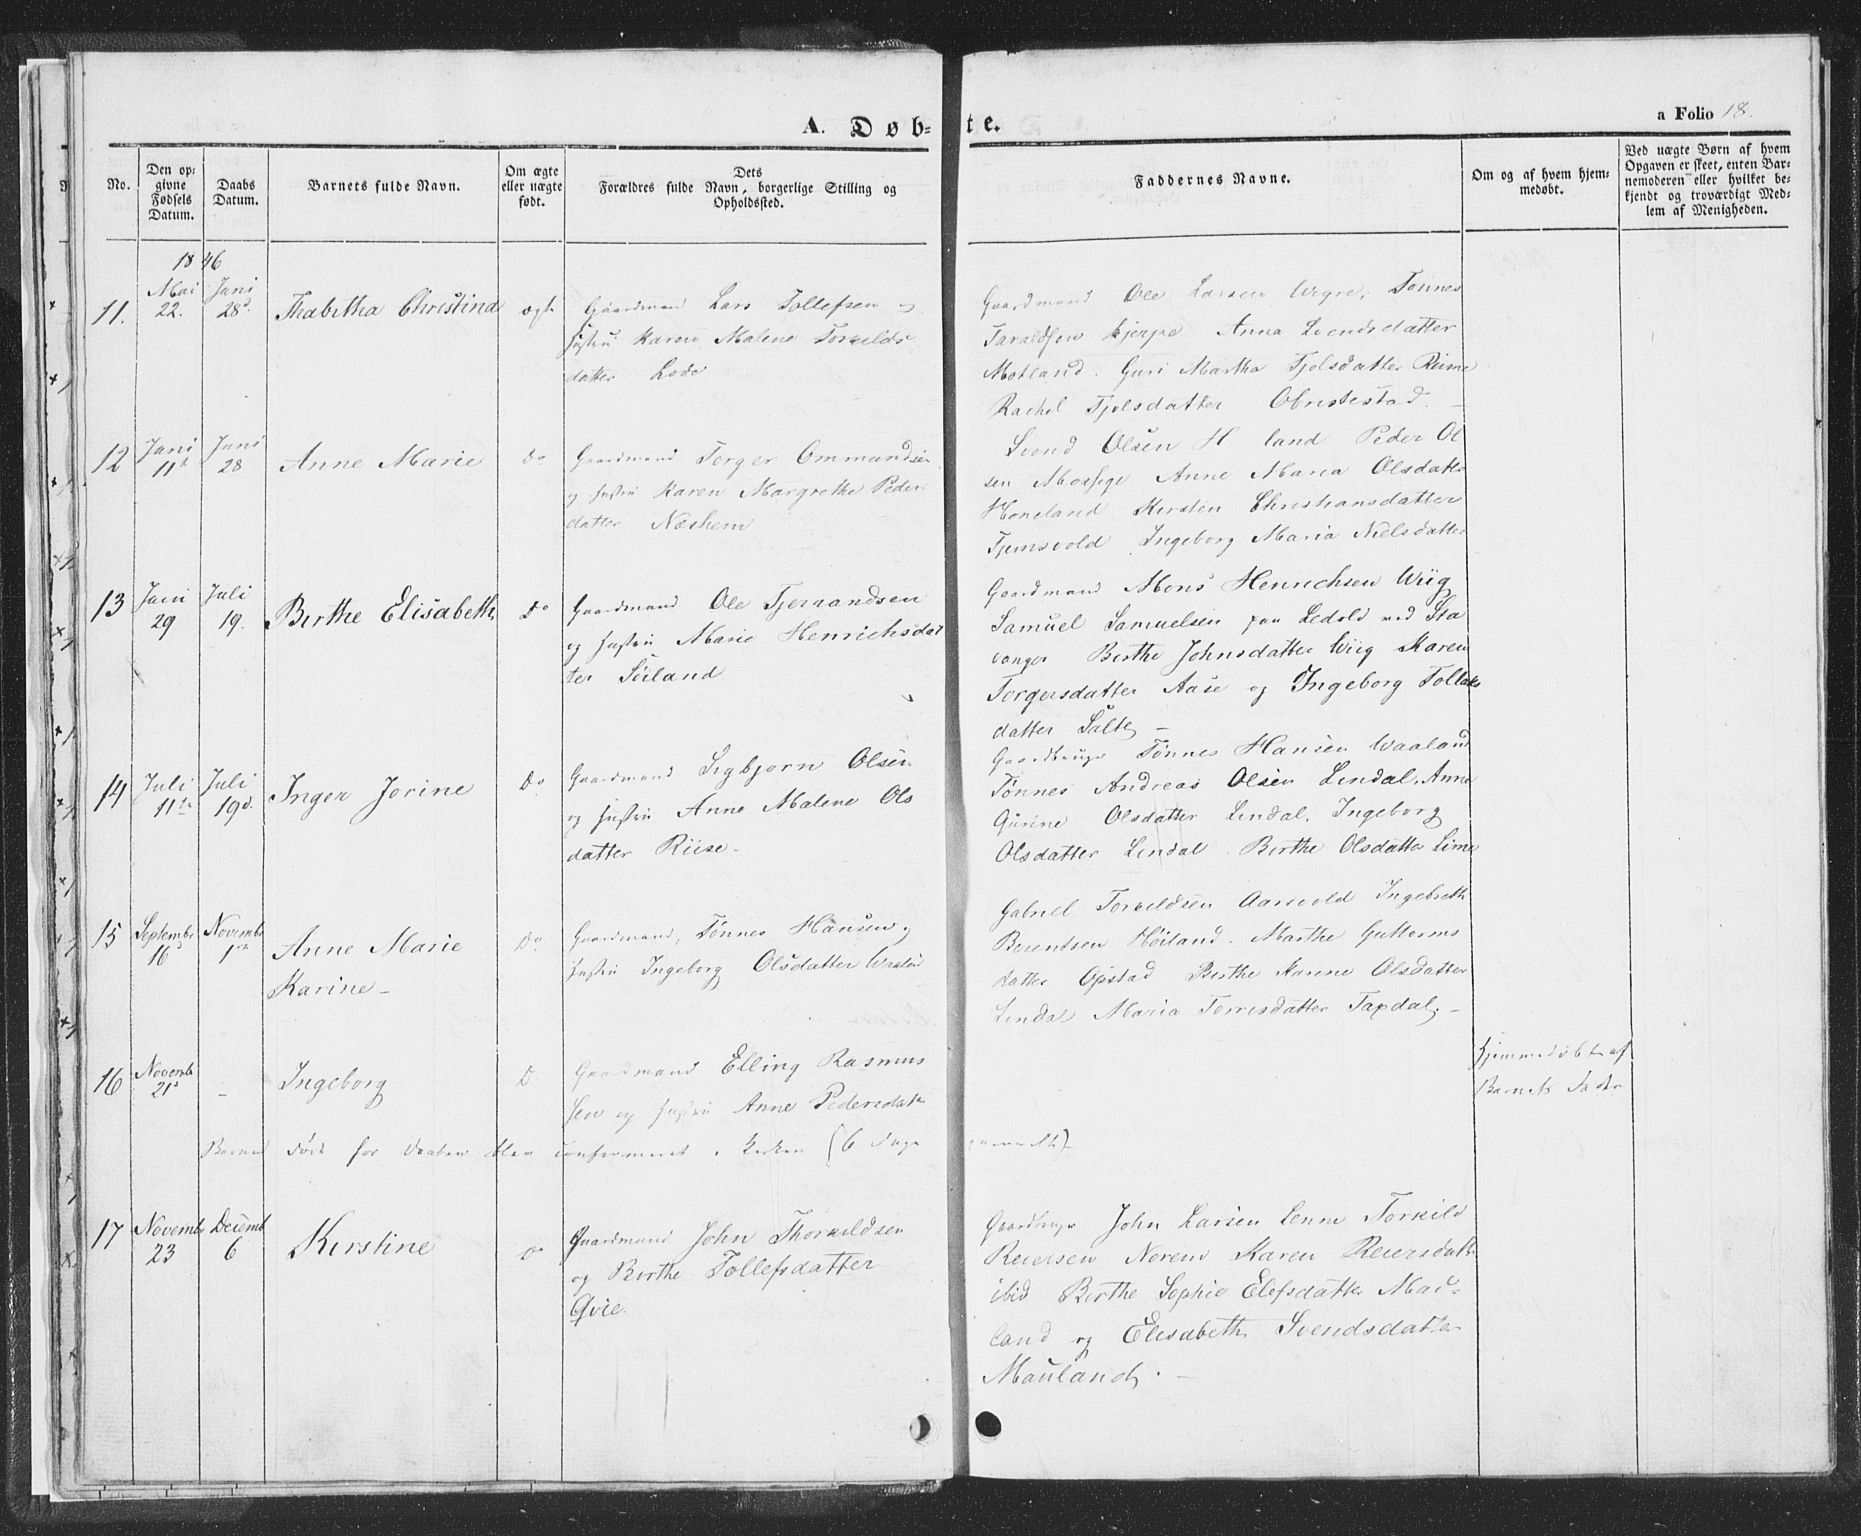 A. Døb-te.
a Folio 18.
No.
Den op-
givne
Fødsels
Datum.
Daabs
Datum.
Barnets fulde Navn.
Om ægte
eller uægte
født.
Dets
Forældres fulde Navn, borgerlige Stilling og
Opholdssted.
Faddernes Navne.
Om og af hvem hjem-
medøbt.
Ved uægte Børn af hvem
Opgaven er skeet, enten Bar-
nemoderen eller hvilket be-
kjendt og troværdigt Med-
lem af Menigheden.
1846
11.
Mai
22.
Juni
28d
Thabitha Christina
ægte
Gaardmand Lars Tollefsen og
Hustru Karen Malene Torkilds
datter Lode
Gaardmand Ole Larsen Wigre, Tønnes
Taraldsen Kjerpe Anna Svendsdatter
Motland. Guri Martha Tjolsdatter Rime
Rachel Tjolsdatter Obrestestad. –
12
Juni
11te
Juni
28
Anne Marie
Do
Gaardmand Torger Ommundsen
og Hustru Karen Margrethe Peders
datter Næshem
Svend Olsen H land Peder Ol
sen Mossige Anne Maria Olsdatter
Honeland Kirsten Christiansdatter
Tjemsvold Ingeborg Maria Nielsdatter
13
Juni
29
Juli
19.
Birthe Elisabeth
Do
Gaardmand Ole Tjerrandsen
og Hustru Marie Henrichsdat
ter Søiland
Gaardmand Mons Henrichsen Wiig
Samuel Samuelsen paa Ledold ved Sta
vanger Birthe Johnsdatter Wiig Karen
Torgersdatter Aase og Ingeborg Tollaks
datter Salte –
14
Juli
11te
Juli
19d.
Inger Jorine
Do
Gaardmand Sigbjørn Olsen
og Hustru Anne Malene Ols
datter Riise –
Gaardbruger Tønnes Hansen Waaland
Tønnes Andreas Olsen Lindal. Anne
Gurine Olsdatter Lindal. Ingeborg
Olsdatter Lindal Birthe Olsdatter Lime
15
Septembr
16d
Novembr
1ste
Anne Marie
Karine –
Do
Gaardmand, Tønnes Hansen og
Hustru Ingeborg Olsdatter Waaland
Gabriel Torkildsen Aarsvold Ingebreth
Berentsen Høiland. Marthe Guttorms
datter Opstad Birthe Karine Olsdatter
Lindal Maria Torrisdatter Taxdal. –
16
Novemb
21d
–
Ingeborg
Do
Gaardmand Elling Rasmus
sen og Hustru Anne Pedersdatter
Hjemmedøbt af
Barnets Fader
Barnet død før Daaben blev confirmeret i Kirken (6 Dage
gammelt) –
17
Novembr
23
Decemb
6
Kirstine
Do
Gaardmand John Thorkildsen
og Birthe Tollefsdatter
Qvie.
Gaardbruger John Larsen Lenne Torkild
Reiersen Norem Karen Reiersdatter
ibid Birthe Sophie Elefsdatter Mad-
land og Elisabeth Svendsdatter
Mauland. –